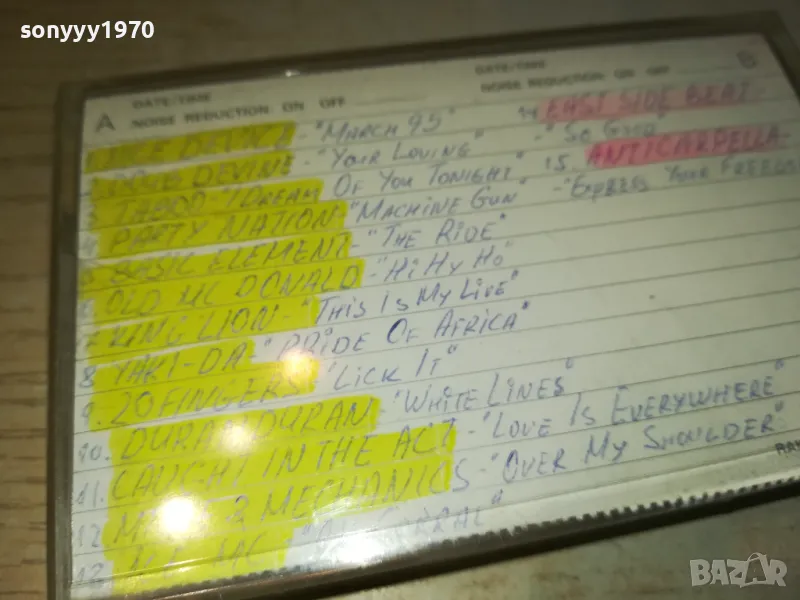 sonyyy1970
A DATE/TIME
NOISE REDUCTION ON OFF
DATE/TIME B
NOISE REDUCTION ON OFF
1. ICE DEVICE - "MARCH 95"
2. DEVINE - "YOUR LOVING"
3. TABOO - "I DREAM OF YOU TONIGHT"
4. PARTY NATION - "MACHINE GUN"
5. BASIC ELEMENT - "THE RIDE"
6. OLD MC DONALD - "HI HY HO"
7. KING LION - "THIS IS MY LIVE"
8. YAKI-DA - "PRIDE OF AFRICA"
9. 20 FINGERS - "LICK IT"
10. DURAN DURAN - "WHITE LINES"
11. CAUGHT IN THE ACT - "LOVE IS EVERYWHERE"
12. MECHANICS - "OVER MY SHOULDER"
13. MC
14. EAST SIDE BEAT -
- "SO GOOD"
15. ANTICAPPELLA -
- "EXPRESS YOUR FREEDO
BAZAR